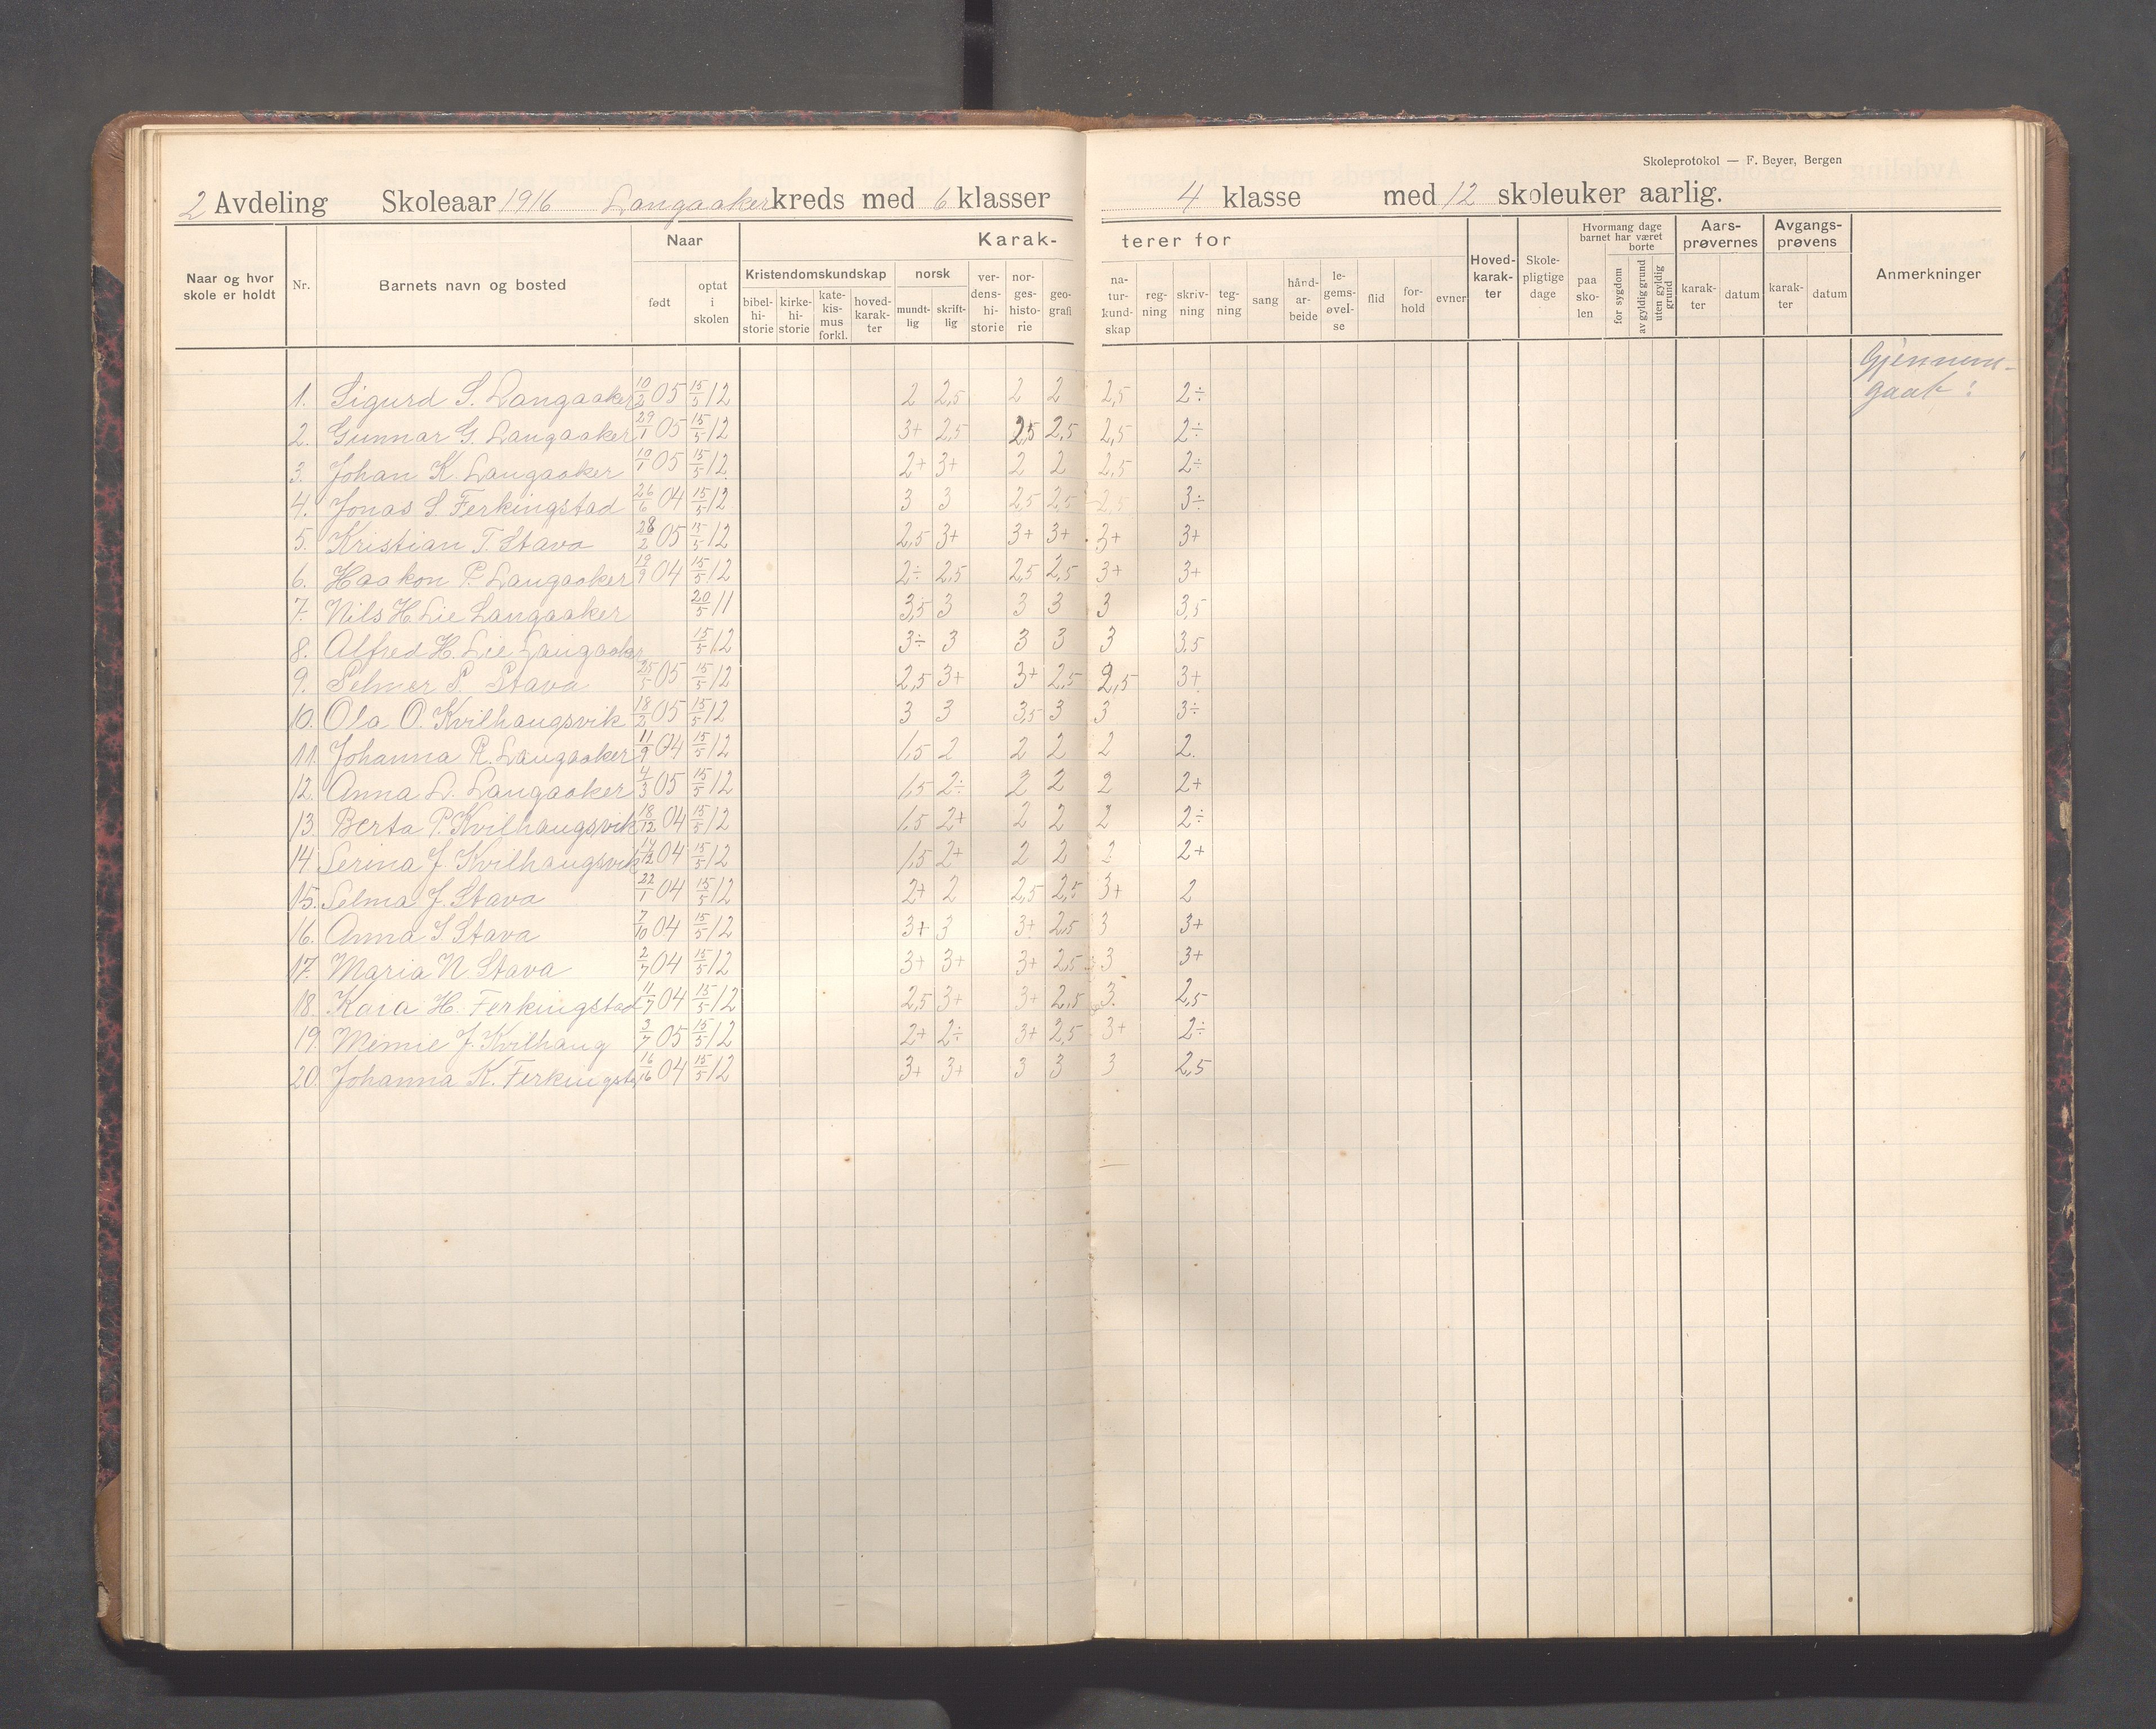 Skoleprotokol — F. Beyer, Bergen
2 Avdeling Skoleaar 1916 Langaaker kreds med 6 klasser 4 klasse med 12 skoleuker aarlig.
Naar og hvor skole er holdt Nr. Barnets navn og bosted Naar født optat i skolen Karakterer for Kristendomskundskap bibelhistorie kirkehistorie katekismus forkl. hovedkarakter norsk mundtlig skriftlig verdenshistorie norgeshistorie geografi naturkundskap regning skrivning tegning sang håndarbeide legemsøvelse flid forhold evner Hovedkarakter Skolepligtige dage Hvormang dage barnet har været borte paa skolen for sygdom av gyldig grund uten gyldig grund Aarsprøvernes karakter datum Avgangsprøvens karakter datum Anmerkninger
Gjennem-
gaat:
1. Sigurd S. Langaaker 10/3 05 15/5 12 2 2,5 2 2 2,5 2÷
2. Gunnar G. Langaaker 29/1 05 15/5 12 3+ 2,5 2,5 2,5 2,5 2÷
3. Johan K. Langaaker 10/1 05 15/5 12 2+ 3+ 2 2 2,5 2÷
4. Jonas S. Ferkingstad 26/6 04 15/5 12 3 3 2,5 2,5 2,5 3÷
5. Kristian T. Stava 28/2 05 15/5 12 2,5 3+ 3+ 3+ 3+ 3+
6. Haakon P. Langaaker 19/9 04 15/5 12 2÷ 2,5 2,5 2,5 3+ 3+
7. Nils H. Lie Langaaker 20/5 11 3,5 3 3 3 3 3,5
8. Alfred H. Lie Langaaker 15/5 12 3÷ 3 3 3 3 3,5
9. Selmer P. Stava 25/5 05 15/5 12 2,5 3+ 3+ 2,5 2,5 3+
10. Ola O. Kvilhaugsvik 18/2 05 15/5 12 3 3 3,5 3 3 3÷
11. Johanna R. Langaaker 11/9 04 15/5 12 1,5 2 2 2 2 2.
12. Anna L. Langaaker 4/3 05 15/5 12 1,5 2÷ 2 2 2 2+
13 Berta P. Kvilhaugsvik 18/12 04 15/5 12 1,5 2+ 2 2 2 2÷
14 Serina J. Kvilhaugsvik 14/12 04 15/5 12 1,5 2+ 2 2 2 2+
15. Selma J. Stava 22/1 04 15/5 12 2+ 2 2,5 2,5 3+ 2
16. Anna S. Stava 7/10 04 15/5 12 3+ 3 3+ 2,5 3 3+
17. Maria N. Stava 2/7 04 15/5 12 3+ 3+ 3+ 2,5 3 3+
18. Kaia H. Ferkingstad 11/7 04 15/5 12 2,5 3+ 3+ 2,5 3. 2,5
19. Mimie J. Kvilhaug 3/7 05 15/5 12 2+ 2÷ 3+ 2,5 3+ 2÷
20. Johanna K. Ferkingstad 16/16 04 15/5 12 3+ 3+ 3 3 3 2,5